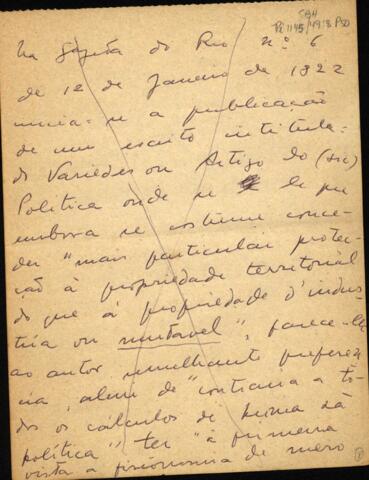 SBH
Pi 145/498 P50
Na Gazeta do Rio n.º 6
de 12 de Janeiro de 1822
inicia-se a publicação
de um escrito intitula-
do Variedes ou Artigo do (sic)
Politica onde se le que
embora se costume conce-
der "mais particular protec-
ção à propriedade territorial
do que à propriedade d'indus-
tria ou mutavel", parece-lhe
ao autor semelhante preferen-
cia, alem de "contraria a to-
dos os cálculos de huma sã
politica" ter "a primeira
vista a fisionomia de mero